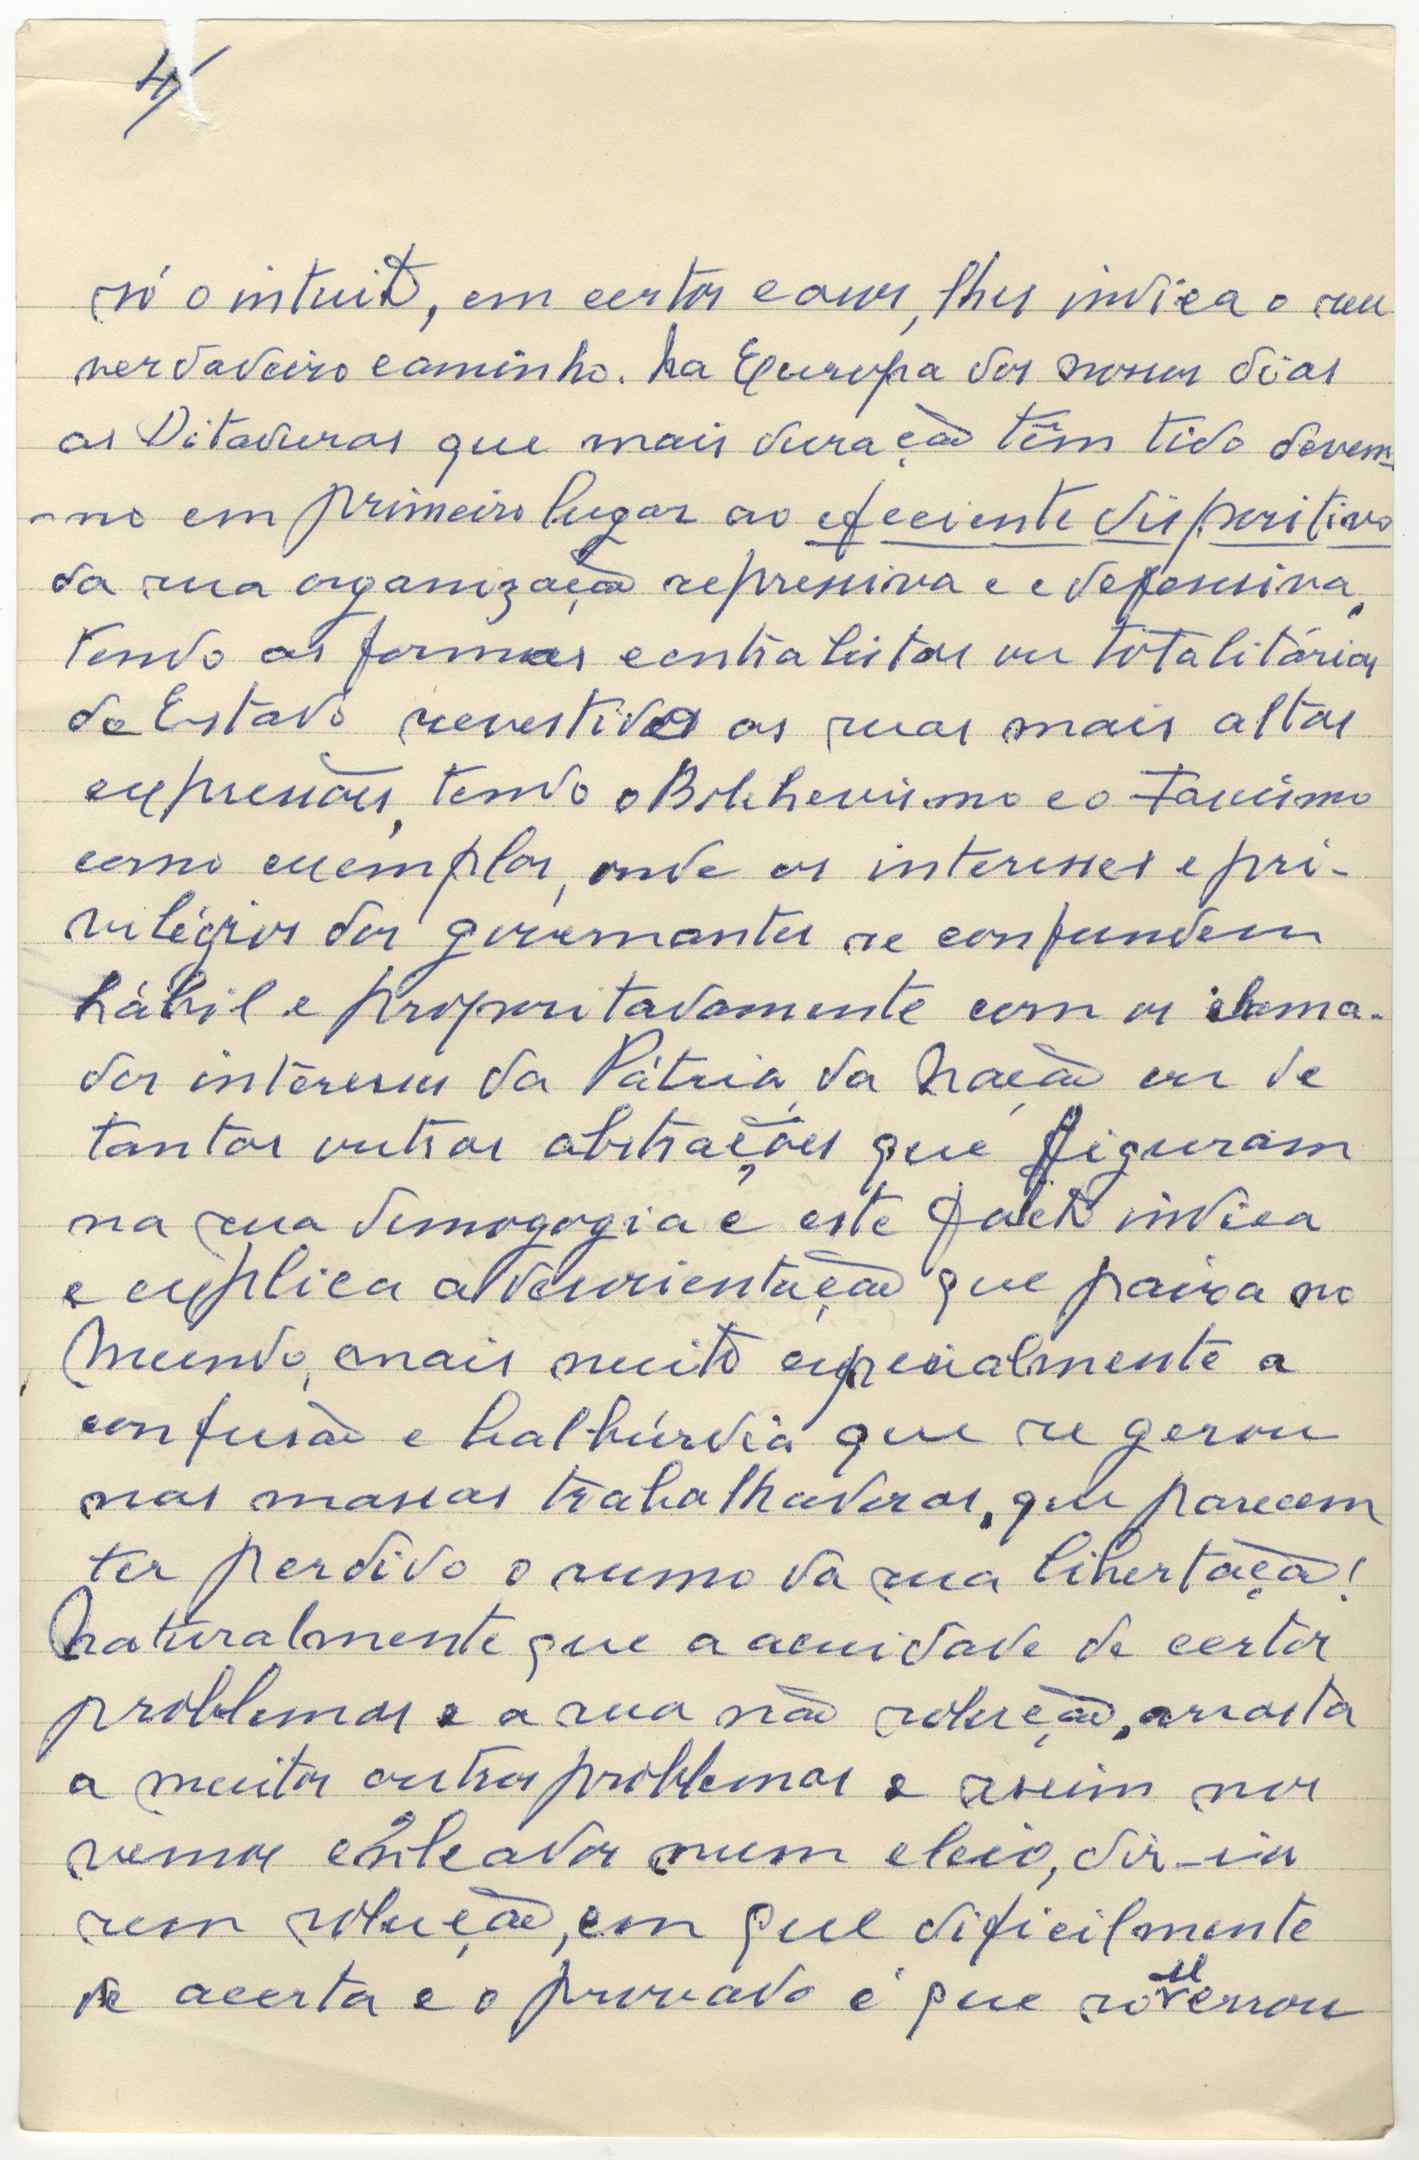 4/
só o intuito, em certos casos, lhes indica o seu
verdadeiro caminho. Na Europa dos nossos dias
as Ditaduras que mais duração têm tido devem-
-no em primeiro lugar ao eficiente dispositivo
da sua organização repressiva e defensiva,
tendo as formas centralistas ou totalitárias
do Estado revestido as suas mais altas
expressões, tendo o Bolchevismo e o Fascismo
como exemplos, onde os interesses e pri-
vilégios dos governantes se confundem
hábil e propositadamente com os chama-
dos interesses da Pátria, da Nação ou de
tantas outras abstrações que figuram
na sua demogogia e este facto indica
e explica a desorientação que paira no
Mundo, mais muito especialmente a
confusão e balbúrdia que se gerou
nas massas trabalhadoras, que parecem
ter perdido o rumo da sua libertação!
Naturalmente que a acuidade de certos
problemas e a sua não solução, arrasta
a muitos outros problemas e assim nos
vemos enleados num eleio, dir-se-ia
sem solução, em que dificilmente
se acerta e o provado é que só se errou